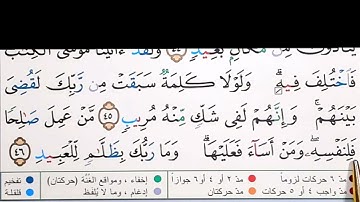 مِن مَّكَانٍۭ بَعِيدٍ ٤٤ وَلَقَدْ ءَاتَيْنَا مُوسَى ٱلْكِتَٰبَ
فَٱخْتُلِفَ فِيهِ ۗ وَلَوْلَا كَلِمَةٌ سَبَقَتْ مِن رَّبِّكَ لَقُضِىَ
بَيْنَهُمْ ۚ وَإِنَّهُمْ لَفِى شَكٍّ مِّنْهُ مُرِيبٍ ٤٥ مَّنْ عَمِلَ صَٰلِحًا
فَلِنَفْسِهِۦ ۖ وَمَنْ أَسَآءَ فَعَلَيْهَا ۗ وَمَا رَبُّكَ بِظَلَّٰمٍ لِّلْعَبِيدِ ٤٦
مدّ ٦ حركات لزوماً مدّ ٢ أو ٤ أو ٦ جوازاً إخفاء، ومواقع الغُنَّة (حركتان) تفخيم
مدّ واجب ٤ أو ٥ حركات مدّ حركتان إدغام، وما لا يُلفظ قلقلة